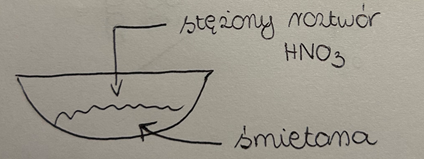 stężony roztwór
HNO₃
śmietana